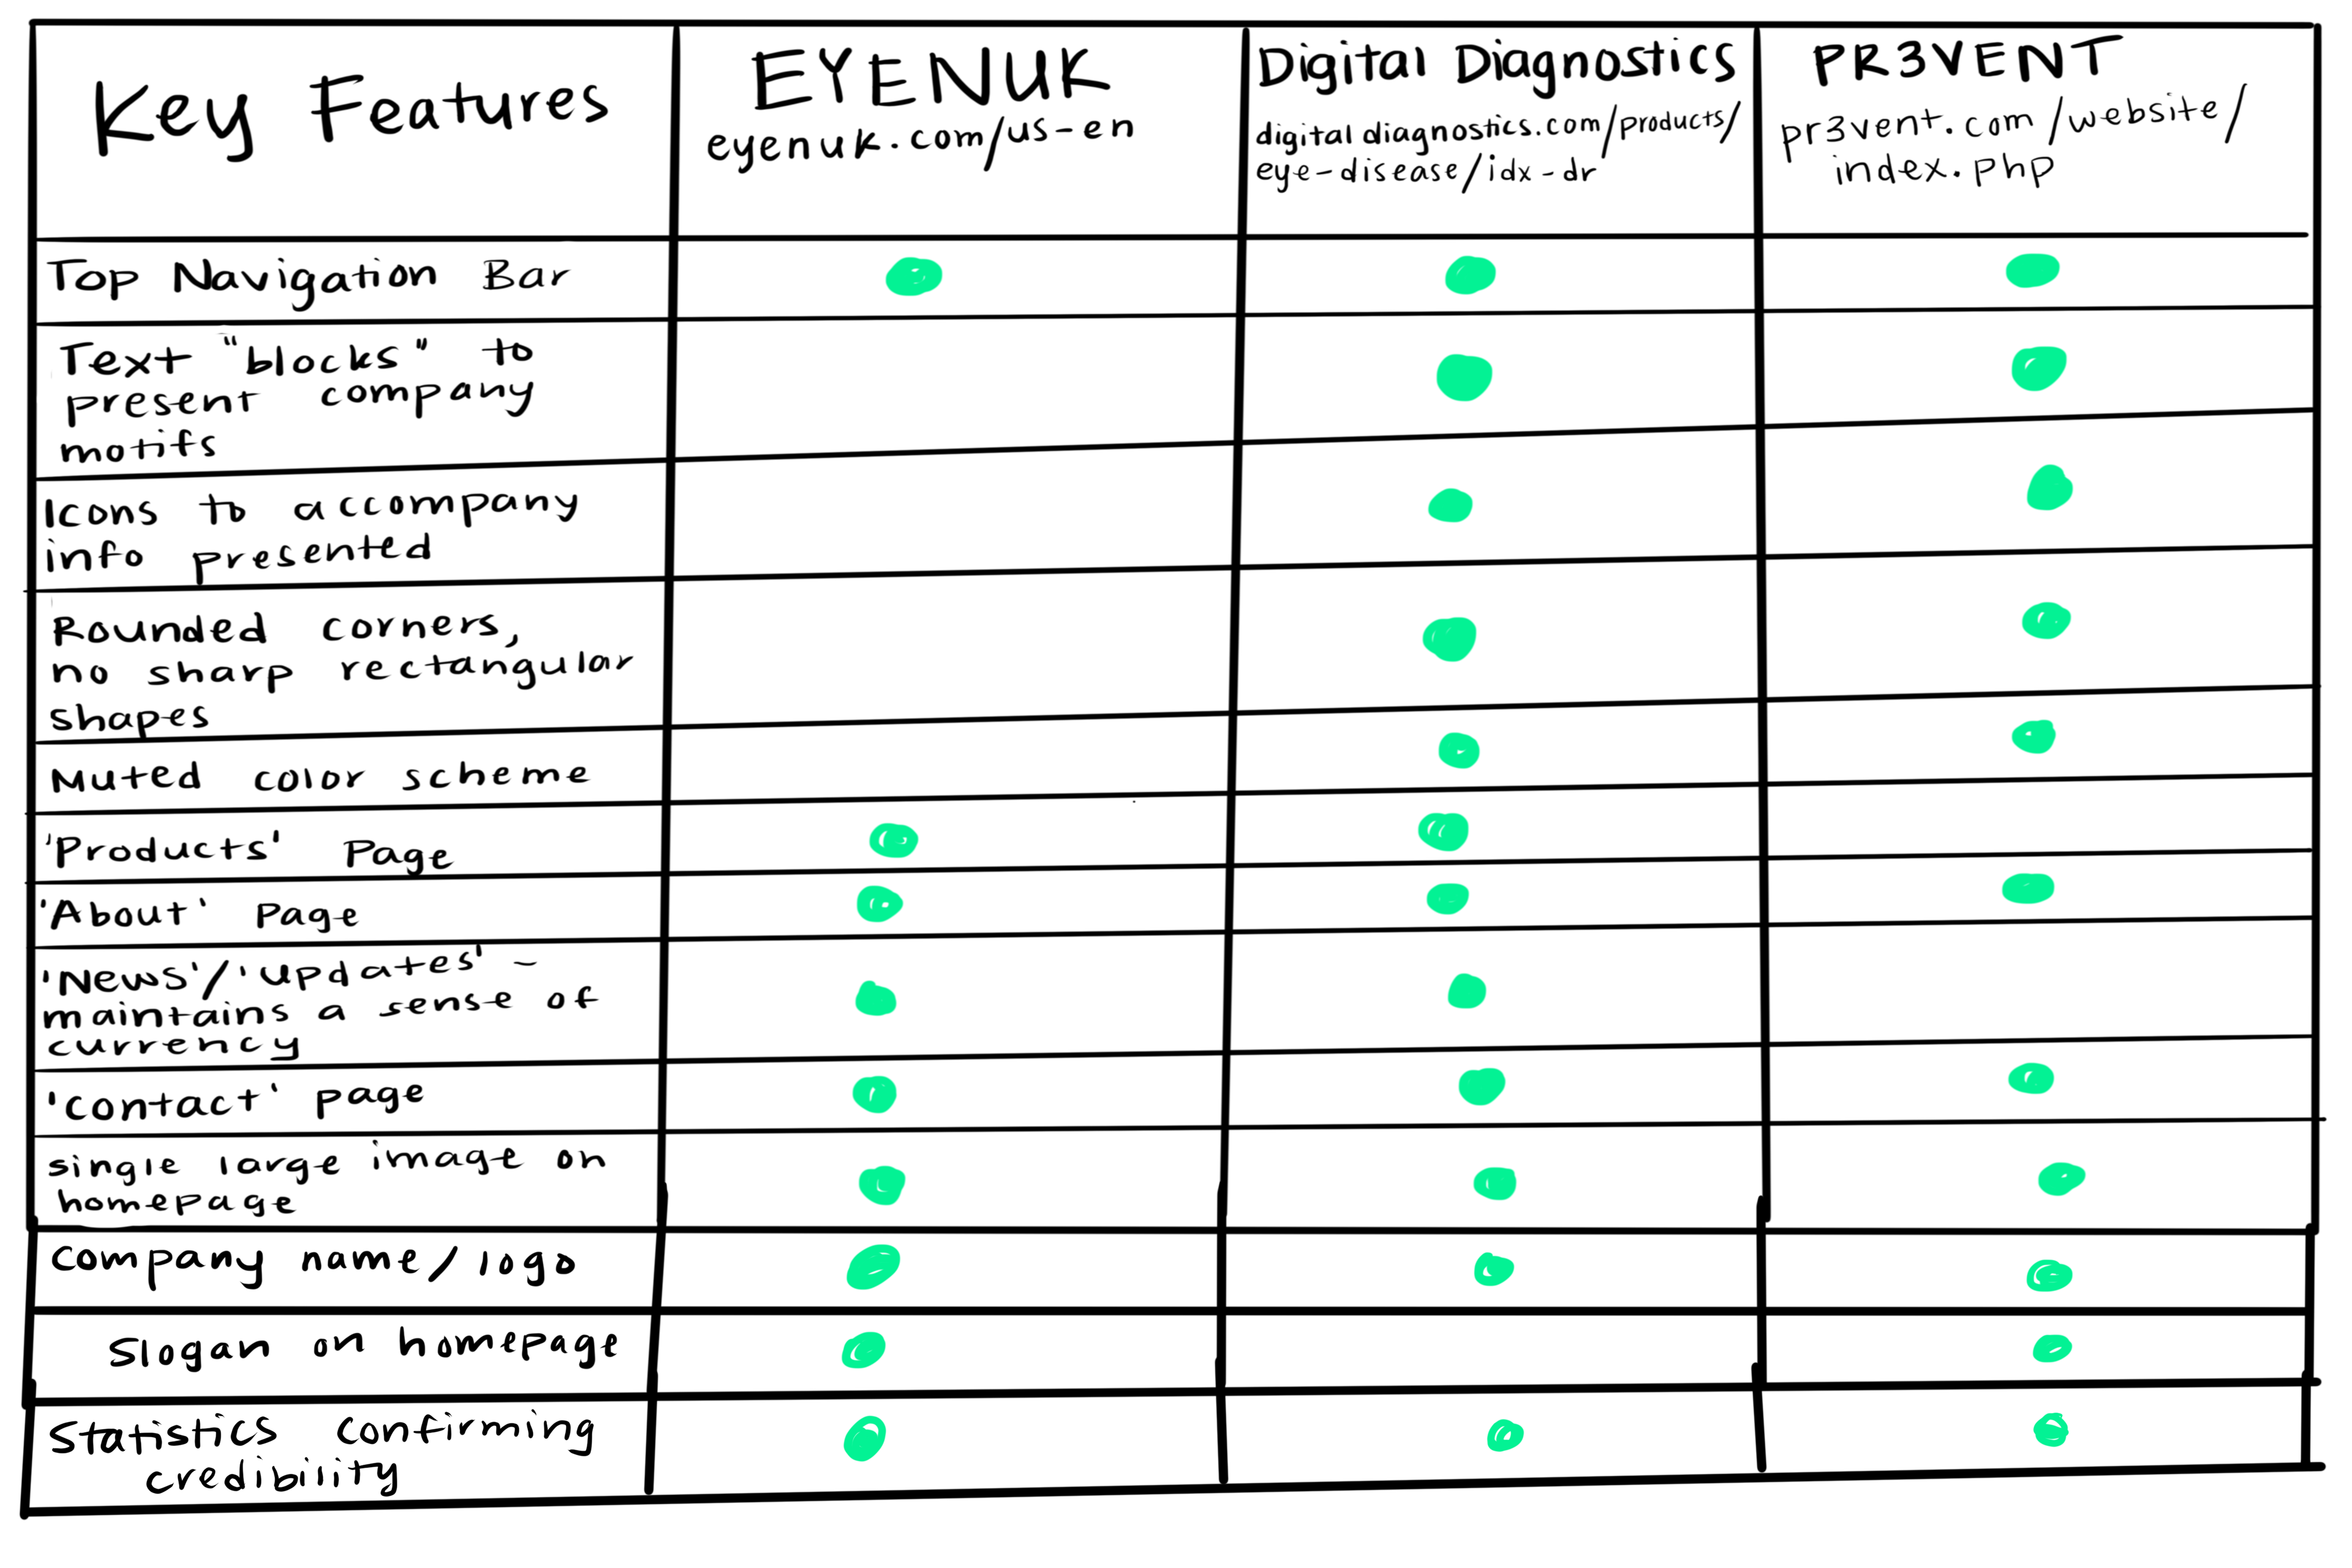 Key Features
EYENUK
eyenuk.com/us-en
Digital Diagnostics
digitaldiagnostics.com/products/
eye-disease/idx-dr
PR3VENT
pr3vent.com/website/
index.php
Top Navigation Bar
Text "blocks" to
present company
motifs
Icons to accompany
info presented
Rounded corners,
no sharp rectangular
shapes
Muted color scheme
'Products' Page
'About' Page
'News'/'updates' -
maintains a sense of
currency
'contact' page
single large image on
homepage
company name/logo
Slogan on homepage
Statistics confirming
credibility